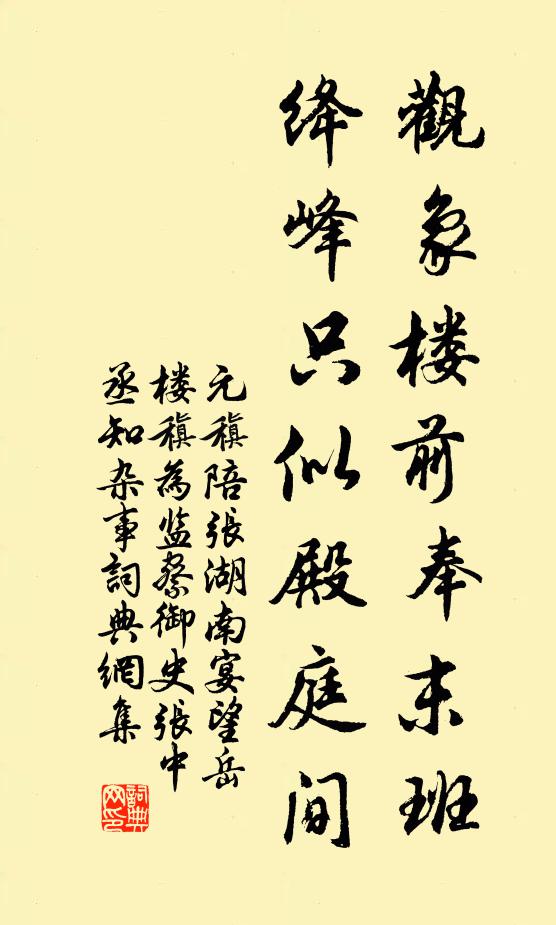 觀象楼前奉末班
绛峰只似殿庭间
元稹陪張湖南宴望岳
楼稹為监察御史張中
丞知杂事詞典網集
詞典网印